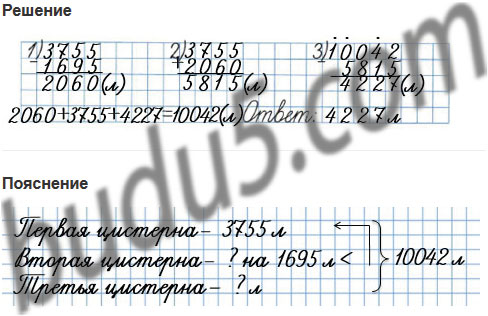 Решение
1) 3755 2) 3755 3) 10042
- 1695 + 2060 - 5815
2060(л) 5815(л) 4227(л)
2060+3755+4227=10042(л) Ответ: 4227л
Пояснение
Первая цистерна – 3755 л
Вторая цистерна – ? на 1695 л < } 10042 л
Третья цистерна – ? л
budu5.com